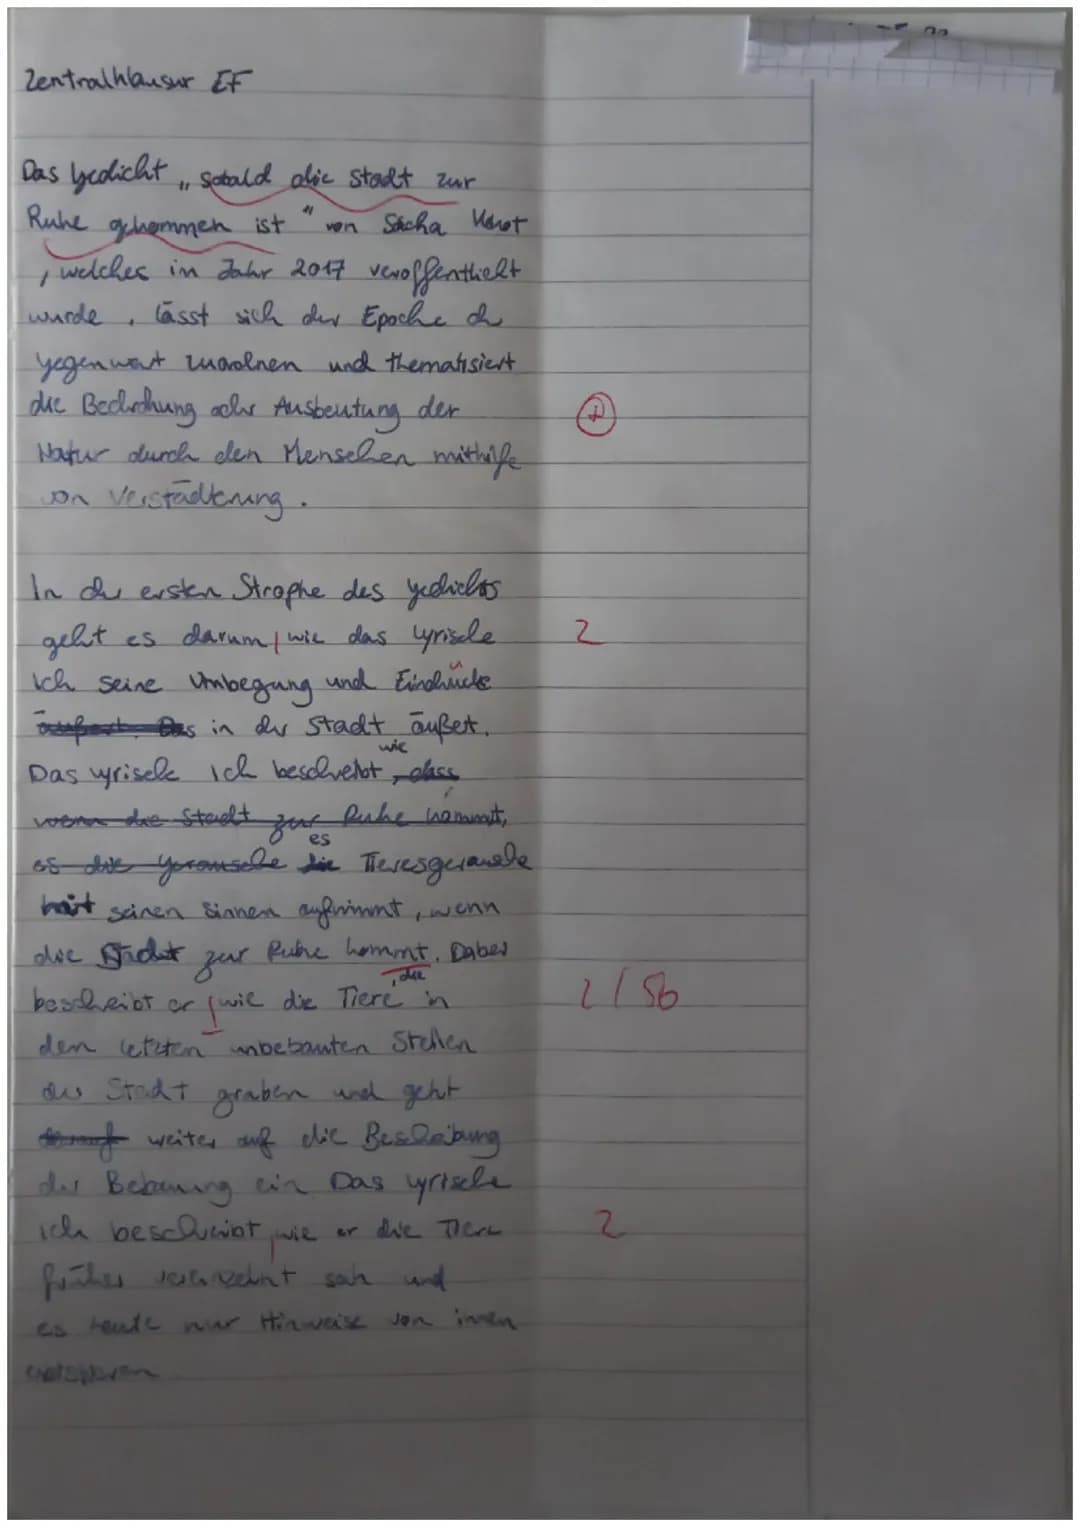 Zentralklausur EF
Das Gedicht „Sobald die Stadt zur
Ruhe gekommen ist" von Sacha
, welches in Jahr 2017 veroffenthelt
wurde, lässt sich der Epoche der
Gegenwart zuordnen und thematisiert
die Bedrohung oder Ausbeutung der
Natur durch den Menschen mithilfe
von Verstädterung.
In der ersten Strophe des Gedichts
geht es darum, wie das lyrische 2
Ich seine Umbegung und Eindrücke
in der Stadt äußert.
wie
Das lyrische Ich beschreibt,
es Tieresgeräusche
mit seinen Sinnen aufnimmt, wenn
die Stadt zur Ruhe kommt. Dabei
, die
bescheibt er, wie die Tiere in 2 / Sb
den letzten unbebauten Stellen
der Stadt graben und geht
weiter auf die Bescheibung
der Bebauung ein. Das lyrische
ich beschreibt, wie er die Tiere 2
früher sah und
es heute nur Hinweise von inen